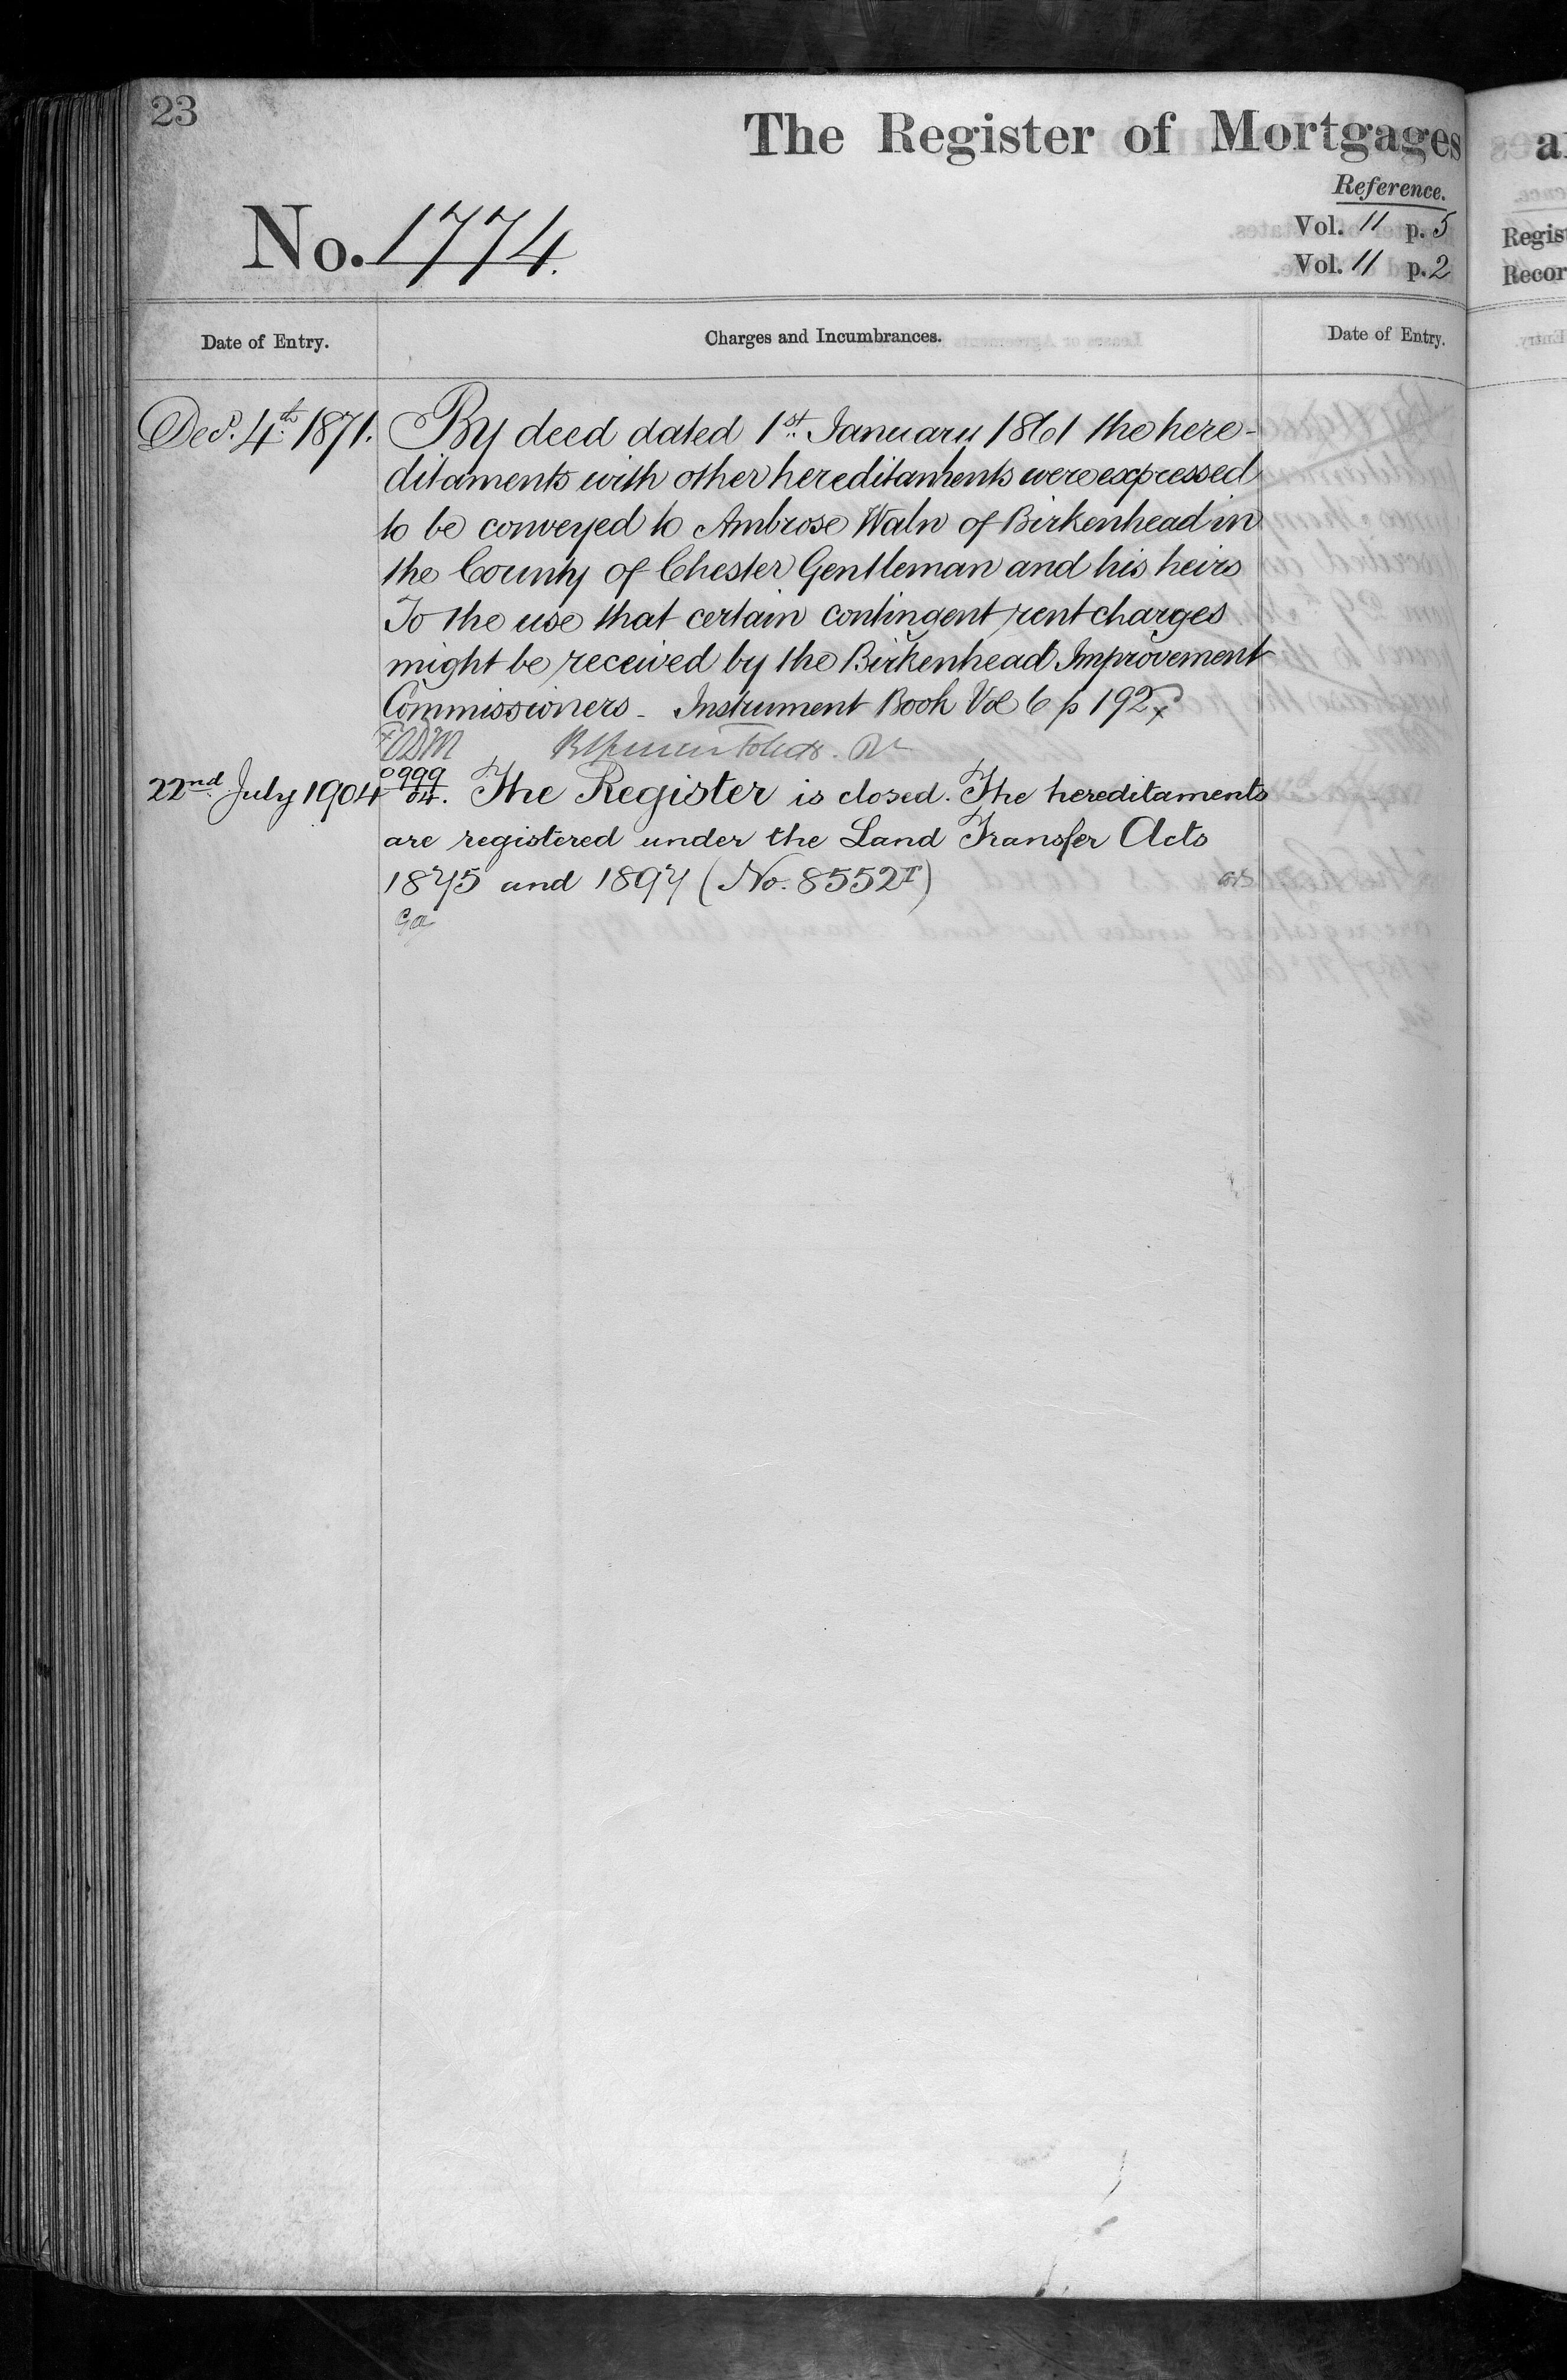 23
The Register of Mortgages
Reference.
No. 1774.
Vol. 11 p. 5
Vol. 11 p. 2
Date of Entry.
Charges and Incumbrances.
Date of Entry.
Decr. 4th 1871.
By deed dated 1st January 1861 the here-
ditaments with other hereditaments were expressed
to be conveyed to Ambrose Waln of Birkenhead in
the County of Chester Gentleman and his heirs
To the use that certain contingent rent charges
might be received by the Birkenhead Improvement
Commissioners - Instrument Book Vol 6 p 192
22nd July 1904
999
04.
The Register is closed. The hereditaments
are registered under the Land Transfer Acts
1875 and 1897 (No. 8552I)
Regis
Recor